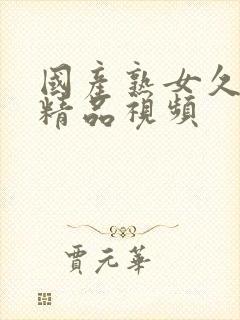 國產熟女久
精品視頻
賈元華